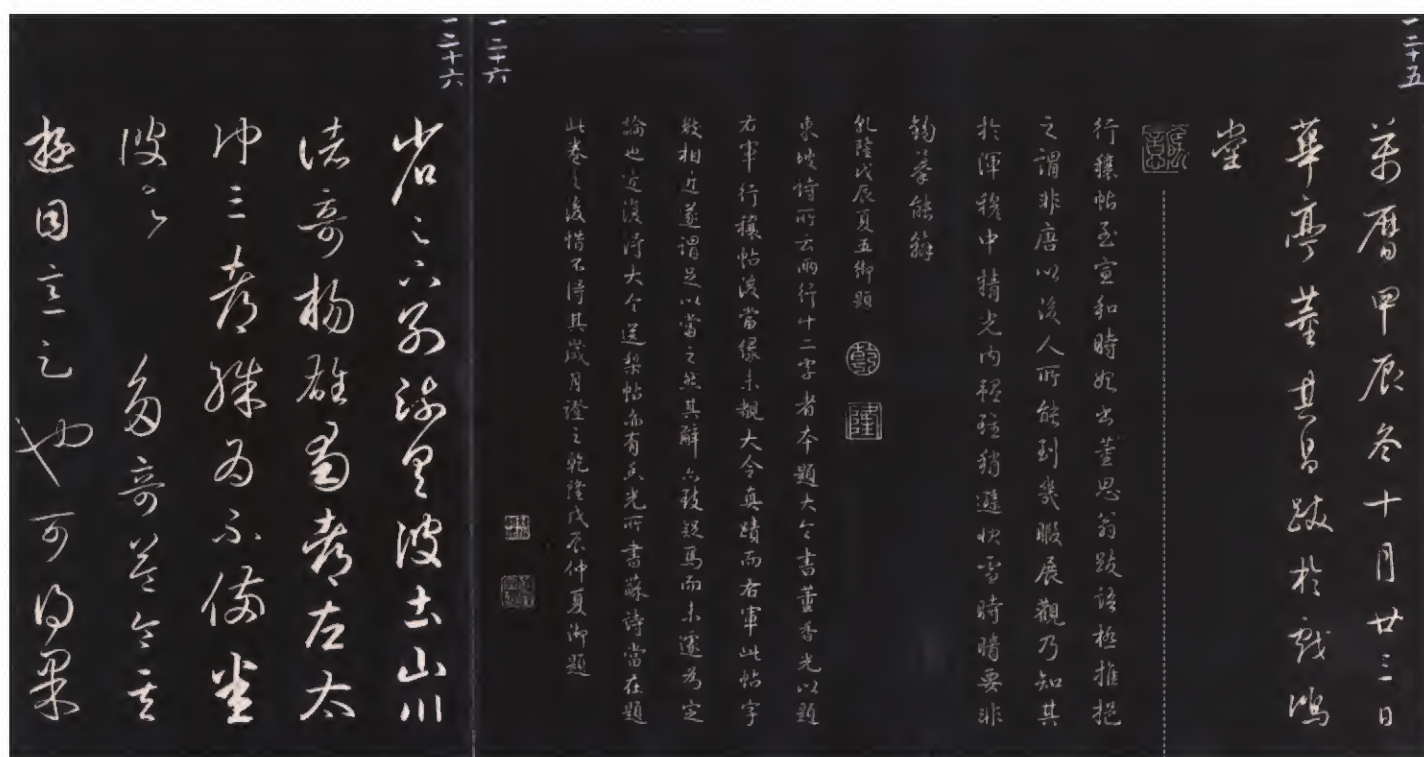 一二十五
萬曆甲辰冬十月廿三日
華亭董其昌跋於戲鴻
堂
行穰帖至宣和時始出董思翁跋語極推挹
之謂非唐以後人所能到幾暇展觀乃知其
於渾穆中精光內韞雖稍遜快雪時晴要非
鉤摹能辦
乾隆戊辰夏五御題
乾
隆
東坡詩所云兩行十二字者本題大令書董香光以題
右軍行穰帖後當緣未覩大令真蹟而右軍此帖字
數相近遂謂足以當之然其辭亦致疑焉而未遽為定
論也近復得大令送梨帖亦有香光所書蘇詩當在題
此卷之後惜不得其歲月證之乾隆戊辰仲夏御題
一二十六
一二十六
省足下別疏具彼土山川
諸奇楊雄蜀都左太
沖三都殊為不備悉
彼故多奇益令其
遊目意足也可得果